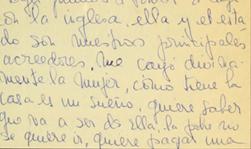 con la inglesa, ella y el está
do son nuestros principales
acreedores. Me cayó divina-
mente la mujer, cómo tiene la
casa es un sueño, quiere saber
que va a ser de ella, la pobre no
se quiere ir, quiere pagar una